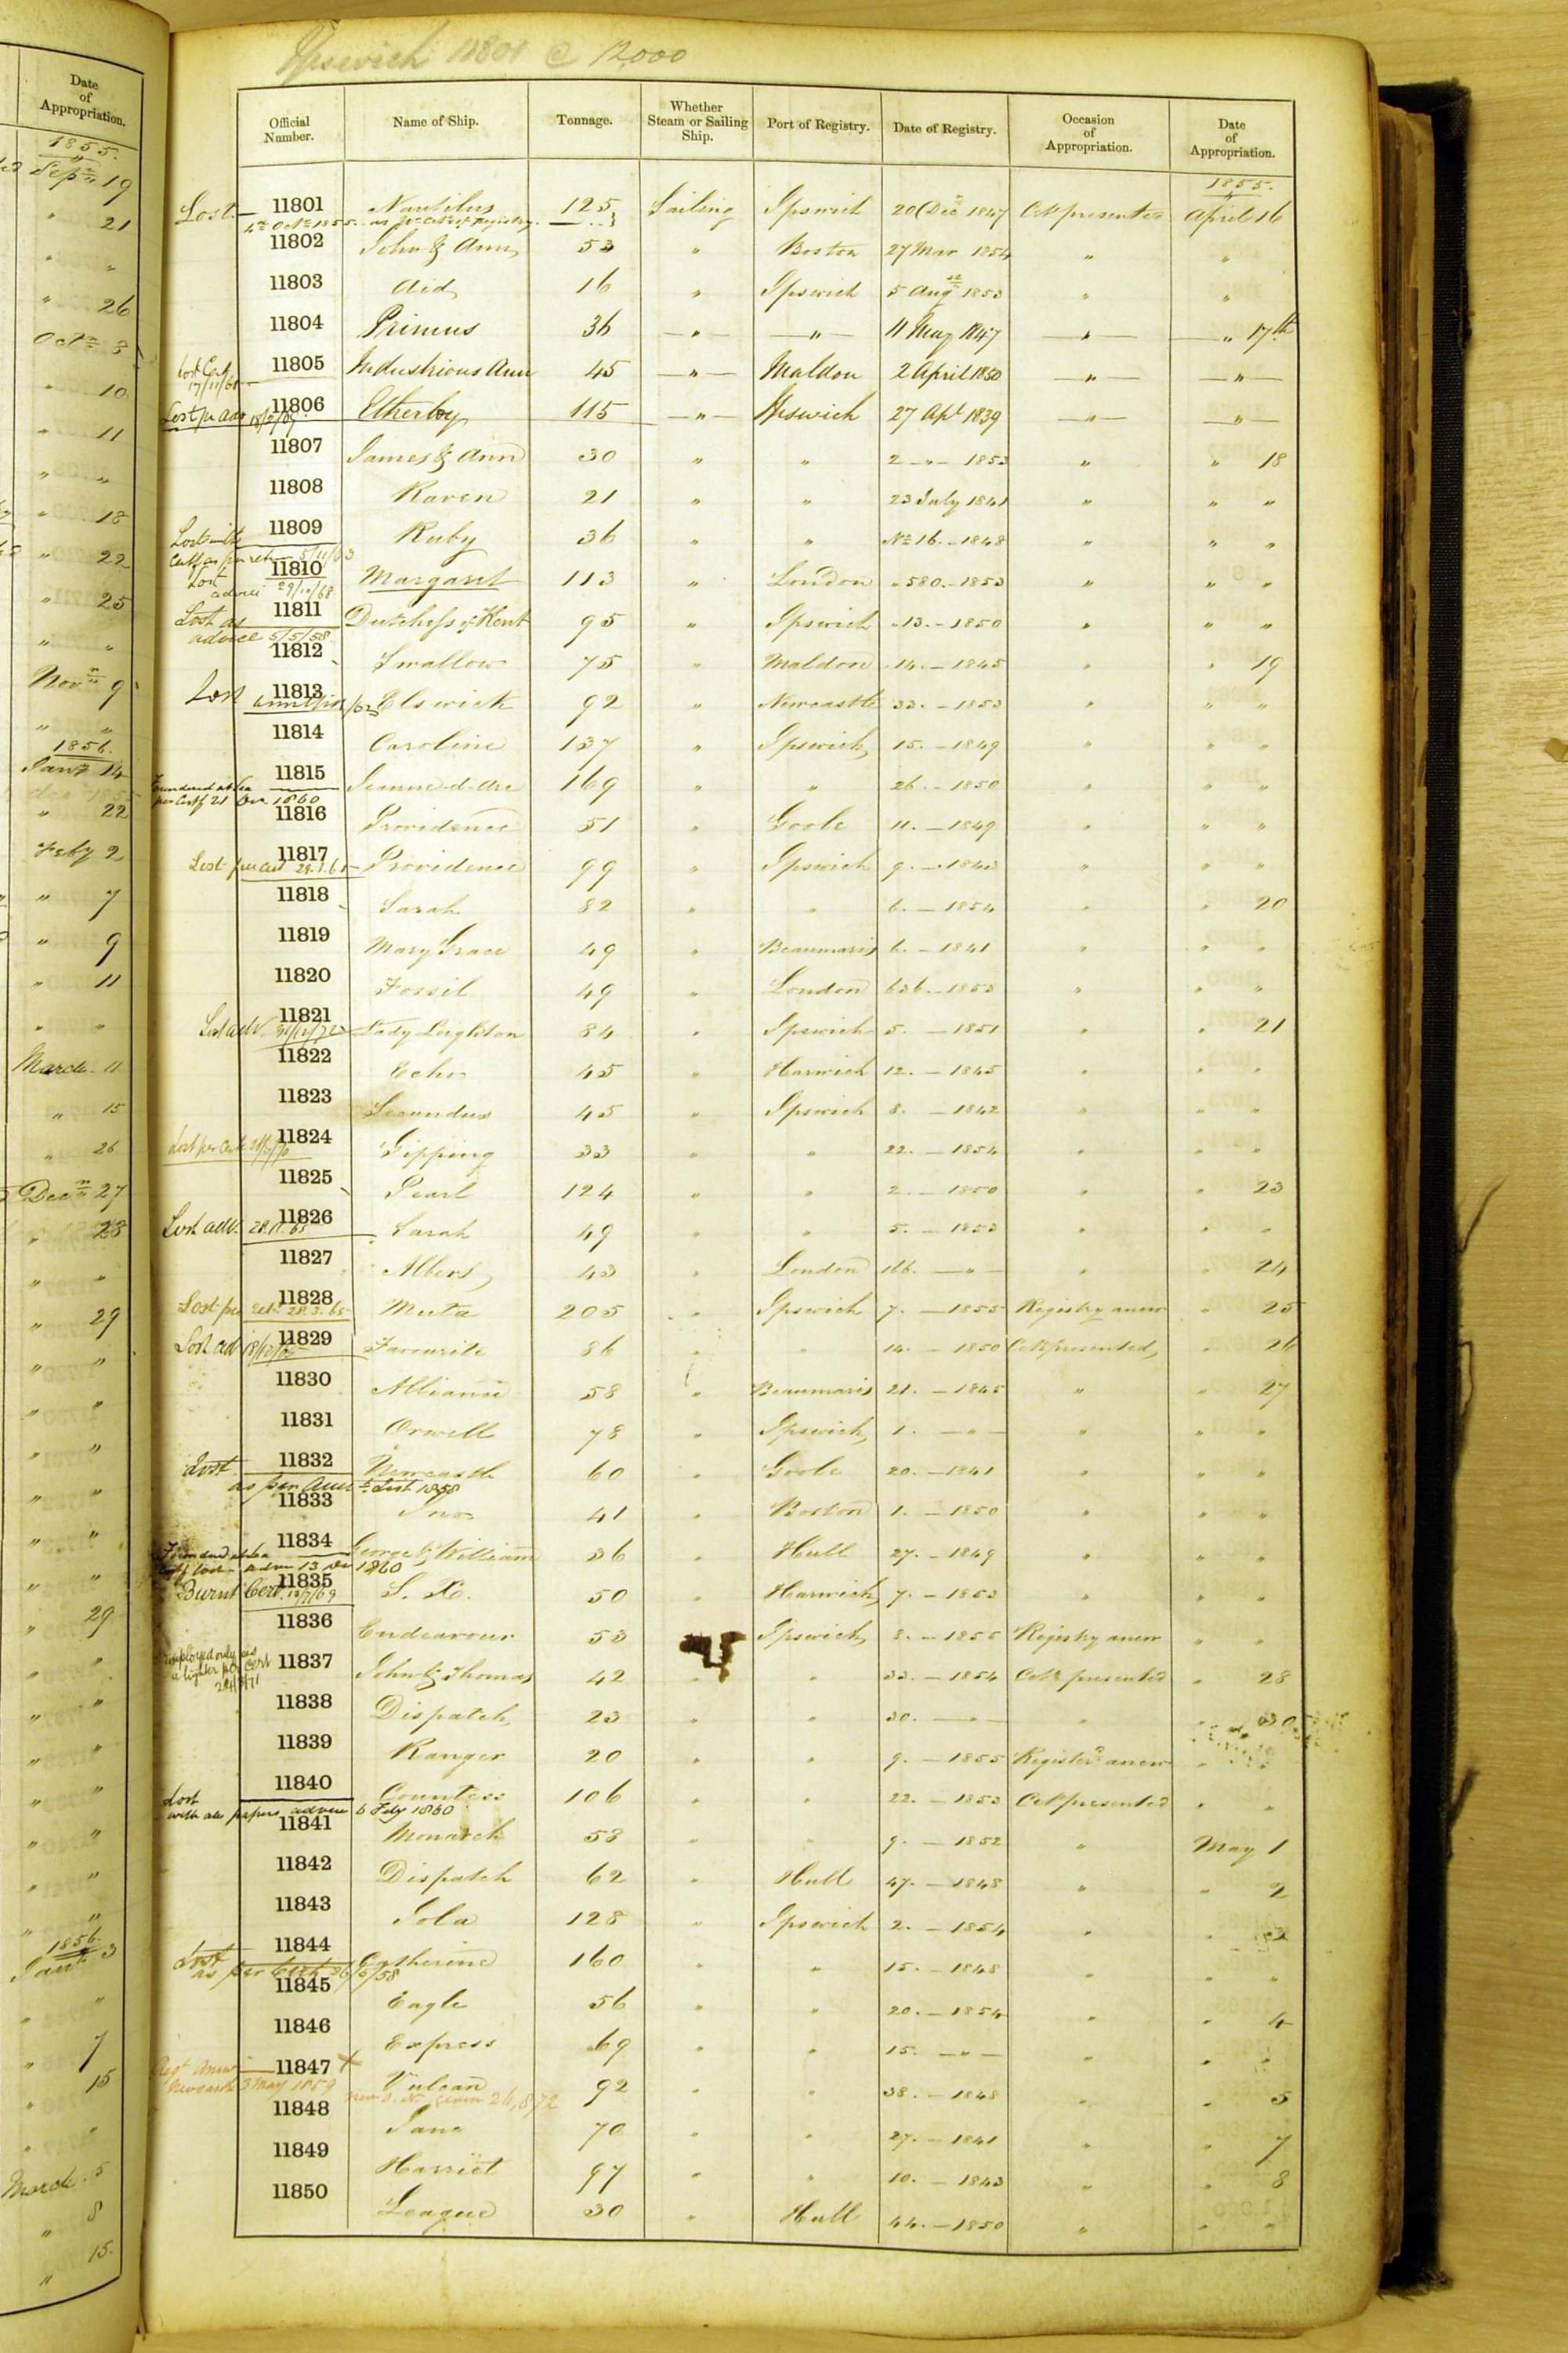 Date of Appropriation.
1855.
Sepr 19
" 21
" "
" 26
Octr 3
" 10
" 11
" "
" 18
" 22
" 25
" "
Novr 9
" "
1856.
Jany 14
" 22
Feby 2
" 7
" 9
" 11
" "
March 11
" 15
" 26
Decr 27
" 28
" "
" 29
" "
" "
" "
" "
" "
" "
" 29
" "
" "
" "
" "
" "
" "
" "
" "
1856.
Jany 3
" "
" 7
" 15
" "
" "
March 5
" 8
" 15.
"
Ipswich 11801 @ 12,000
Official Number. Name of Ship. Tonnage. Whether Steam or Sailing Ship. Port of Registry. Date of Registry. Occasion of Appropriation. Date of Appropriation.
1855.
Lost. 11801 Nautilus 125 Sailing Ipswich 20 Dec 1847 Cert presented April 16
4th Octr 1855. as pr Certr of Registry.
11802 John & Ann 53 " Boston 27 Mar 1854 " "
11803 Aid 16 " Ipswich 5 Aug 1853 " "
11804 Primus 36 " " 11 May 1847 " " 17th
Lost Cert 17/11/60 11805 Industrious Ann 45 " Maldon 2 April 1850 " "
Lost pr adv 11806 Etherley 115 " Ipswich 27 Apl 1839 " "
11807 James & Ann 30 " " 2 " 1853 " " 18
11808 Raven 21 " " 23 July 1841 " " "
11809 Ruby 36 " " No 16. - 1848 " " "
Lost with Certf as per retn 5/11/63
11810 Margaret 113 " London " 580. - 1853 " " "
Lost advice 29/10/68
11811 Dutchess of Kent 95 " Ipswich " 13. - 1850 " " "
Lost as advice 5/5/58
11812 Swallow 75 " Maldon 14. - 1845 " " 19
Lost 11813 Elswick 92 " Newcastle 33. - 1853 " " "
11814 Caroline 137 " Ipswich 15. - 1849 " " "
11815 Jeanne-d-Arc 169 " " 26. - 1850 " " "
Foundered at Sea per Certf 21 Dec. 1860
11816 Providence 51 " Goole 11. - 1849 " " "
11817 Providence 99 " Ipswich 9. - 1843 " " "
Lost per Cert 28.3.65
11818 Sarah 82 " " 6. - 1854 " " 20
11819 Mary Grace 49 " Beaumaris 6. - 1841 " " "
11820 Fossil 49 " London 636. - 1853 " " "
Lost adv. 11821 Lady Leighton 84 " Ipswich 5. - 1851 " " 21
11822 Echo 45 " Harwich 12. - 1845 " " "
11823 Secundus 45 " Ipswich 8. - 1842 " " "
Lost per Cert 11824 Gipping 33 " " 22. - 1854 " " "
11825 Pearl 124 " " 2. - 1850 " " 23
Lost adv. 28.11.65 11826 Sarah 49 " " 5. - 1853 " " "
11827 Albert 43 " London 166. - " - " " 24
Lost per Cert. 28.3.65 11828 Meeta 205 " Ipswich 7. - 1855 Registry anew " 25
Lost ad 11829 Favourite 86 " " 14. - 1850 Cert presented, " 26
11830 Alliance 58 " Beaumaris 21. - 1845 " " 27
11831 Orwell 78 " Ipswich 1. - " - " " "
Lost 11832 Newcastle 60 " Goole 20. - 1841 " " "
as per Annl List 1858
11833 Ino 41 " Boston 1. - 1850 " " "
11834 George & William 36 " Hull 27. - 1849 " " "
Foundered at Sea Certf lost - advice 13 Dec 1860
11835 S. X. 50 " Harwich 7. - 1853 " " "
Burnt Cert. 13/7/69
11836 Endeavour 53 Ipswich 8. - 1855 Registry anew " "
Employed only as a lighter per Cert 11837 John & Thomas 42 " " 33. - 1854 Cert presented " 28
11838 Dispatch 23 " " 30. - " - " " 30
11839 Ranger 20 " " 9. - 1855 Registerd anew " "
11840 Countess 106 " " 22. - 1853 Cert presented " "
Lost with all papers advice 6 Feby 1860
11841 Monarch 58 " " 9. - 1852 " May 1
11842 Dispatch 62 " Hull 47. - 1848 " " 2
11843 Iola 128 " Ipswich 2. - 1854 " "
Lost 11844 Catherine 160 " " 15. - 1848 " " "
as per Cert 26/6/58
11845 Eagle 56 " " 20. - 1854 " " 4
11846 Express 69 " " 15. - " - " " "
Regd Anew Newcastle 3 May 1859 11847 X Vulcan 92 " " 38. - 1848 " " 5
new O. No given 26,872
11848 Jane 70 " " 27. - 1841 " " 7
11849 Harriet 97 " " 10. - 1843 " " 8
11850 League 30 " Hull 44. - 1850 " " "